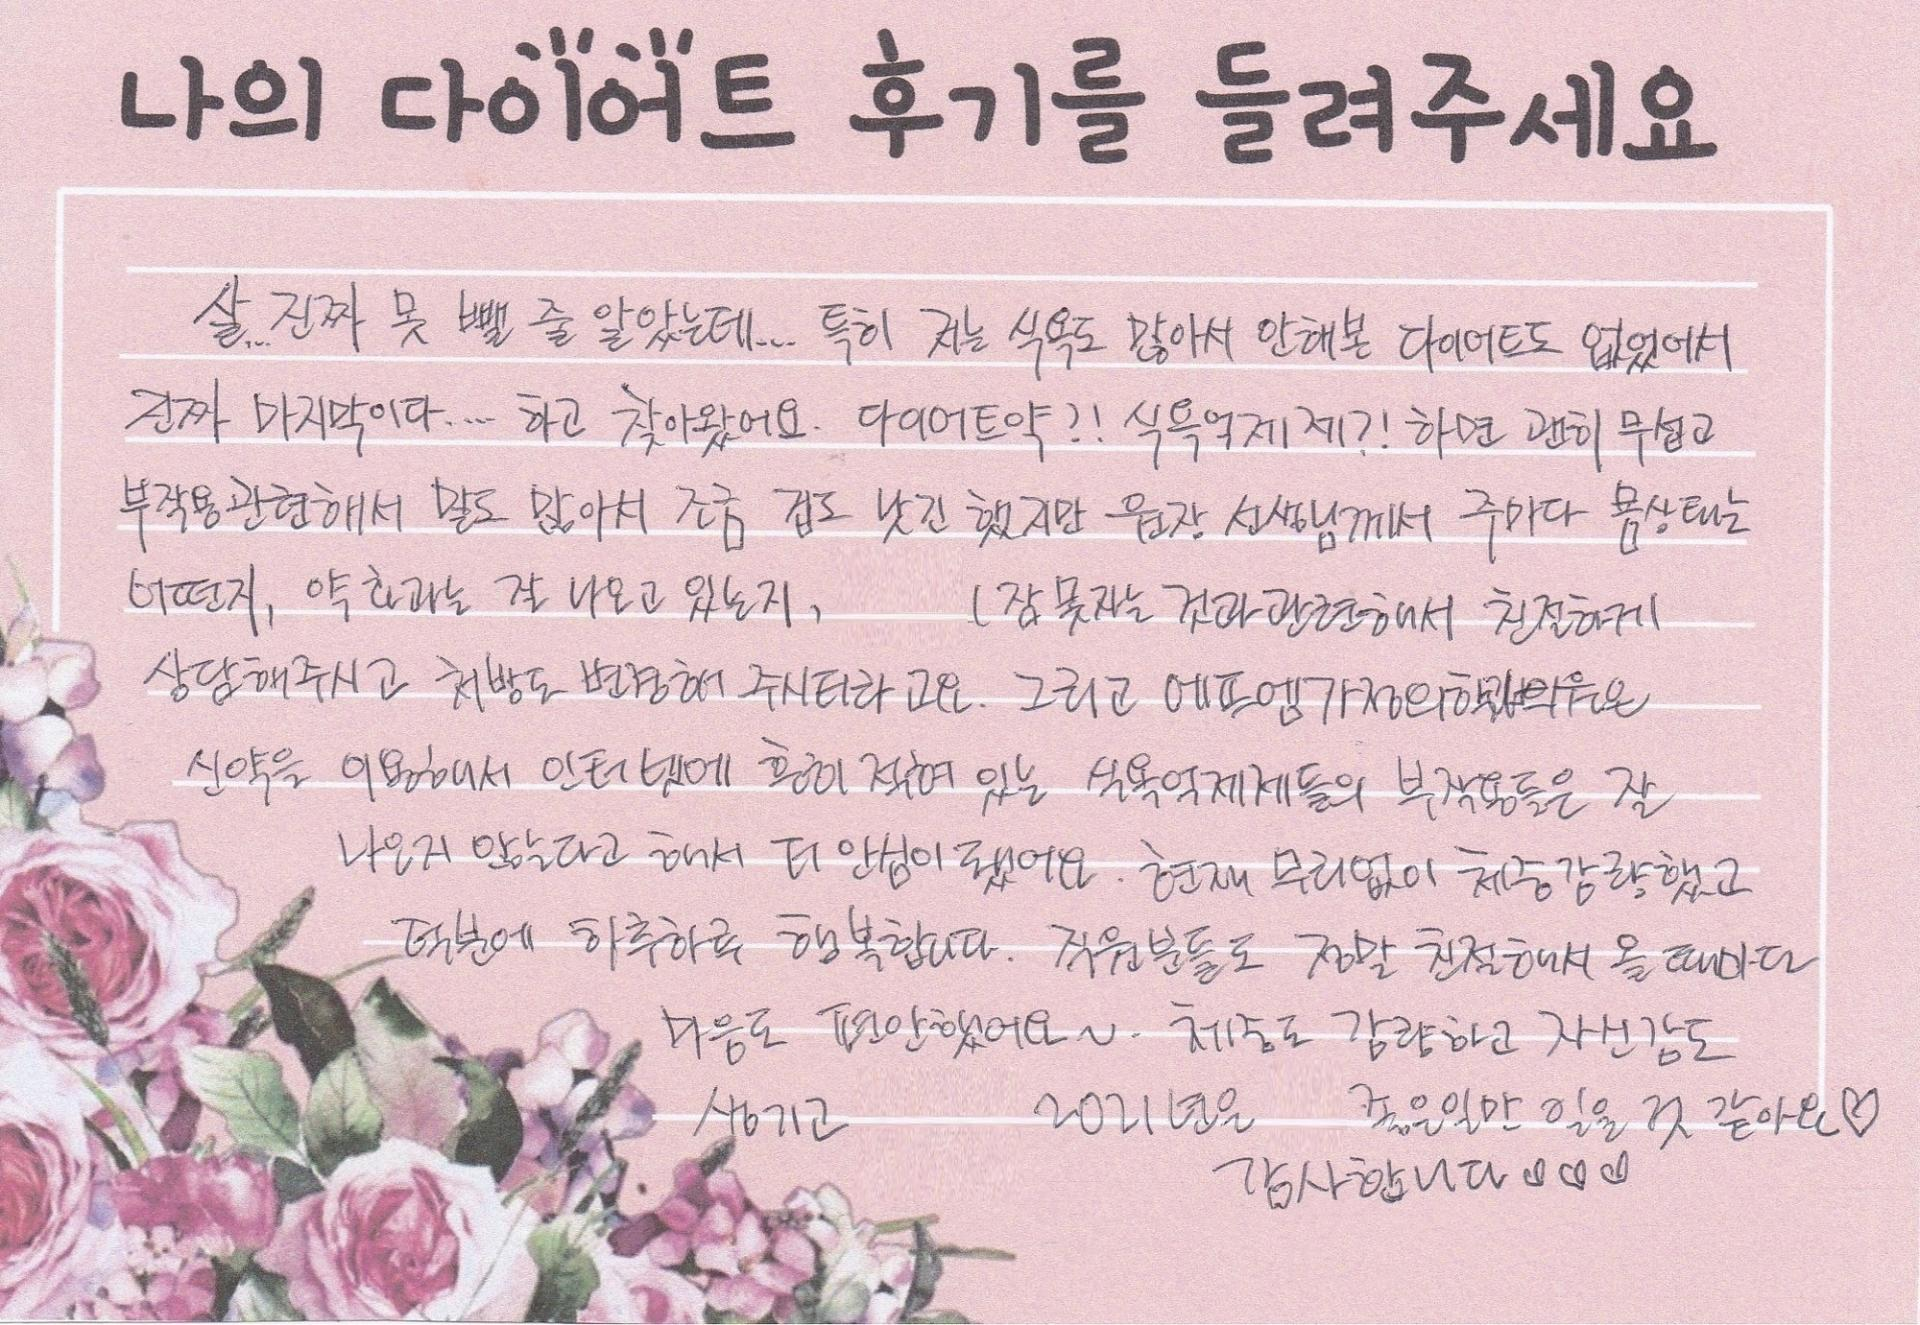 나의 다이어트 후기를 들려주세요
살... 진짜 못 뺄 줄 알았는데.... 특히 저는 식욕도 많아서 안해본 다이어트도 없었어서
진짜 마지막이다.... 하고 찾아왔어요. 다이어트약?! 식욕억제제?! 하면 괜히 무섭고
부작용관련해서 말도 많아서 조금 겁도 났긴 했지만 원장 선생님께서 주마다 몸상태는
어떤지, 약효과는 잘 나오고 있는지, (잠 못자는 것과관련해서 친절하게
상담해주시고 처방도 변경해 주시더라고요. 그리고 에프엠가정의학과의원은
신약을 이용해서 인터넷에 흔히 적혀 있는 식욕억제제들의 부작용들은 잘
나오지 않는다고 해서 더 안심이 됐어요. 현재 무리없이 체중감량했고
덕분에 하루하루 행복합니다. 직원분들도 정말 친절해서 올 때마다
마음도 편안했어요~. 체중도 감량하고 자신감도
생기고 2021년은 좋은일만 있을 것 같아요♡
감사합니다♡♡♡